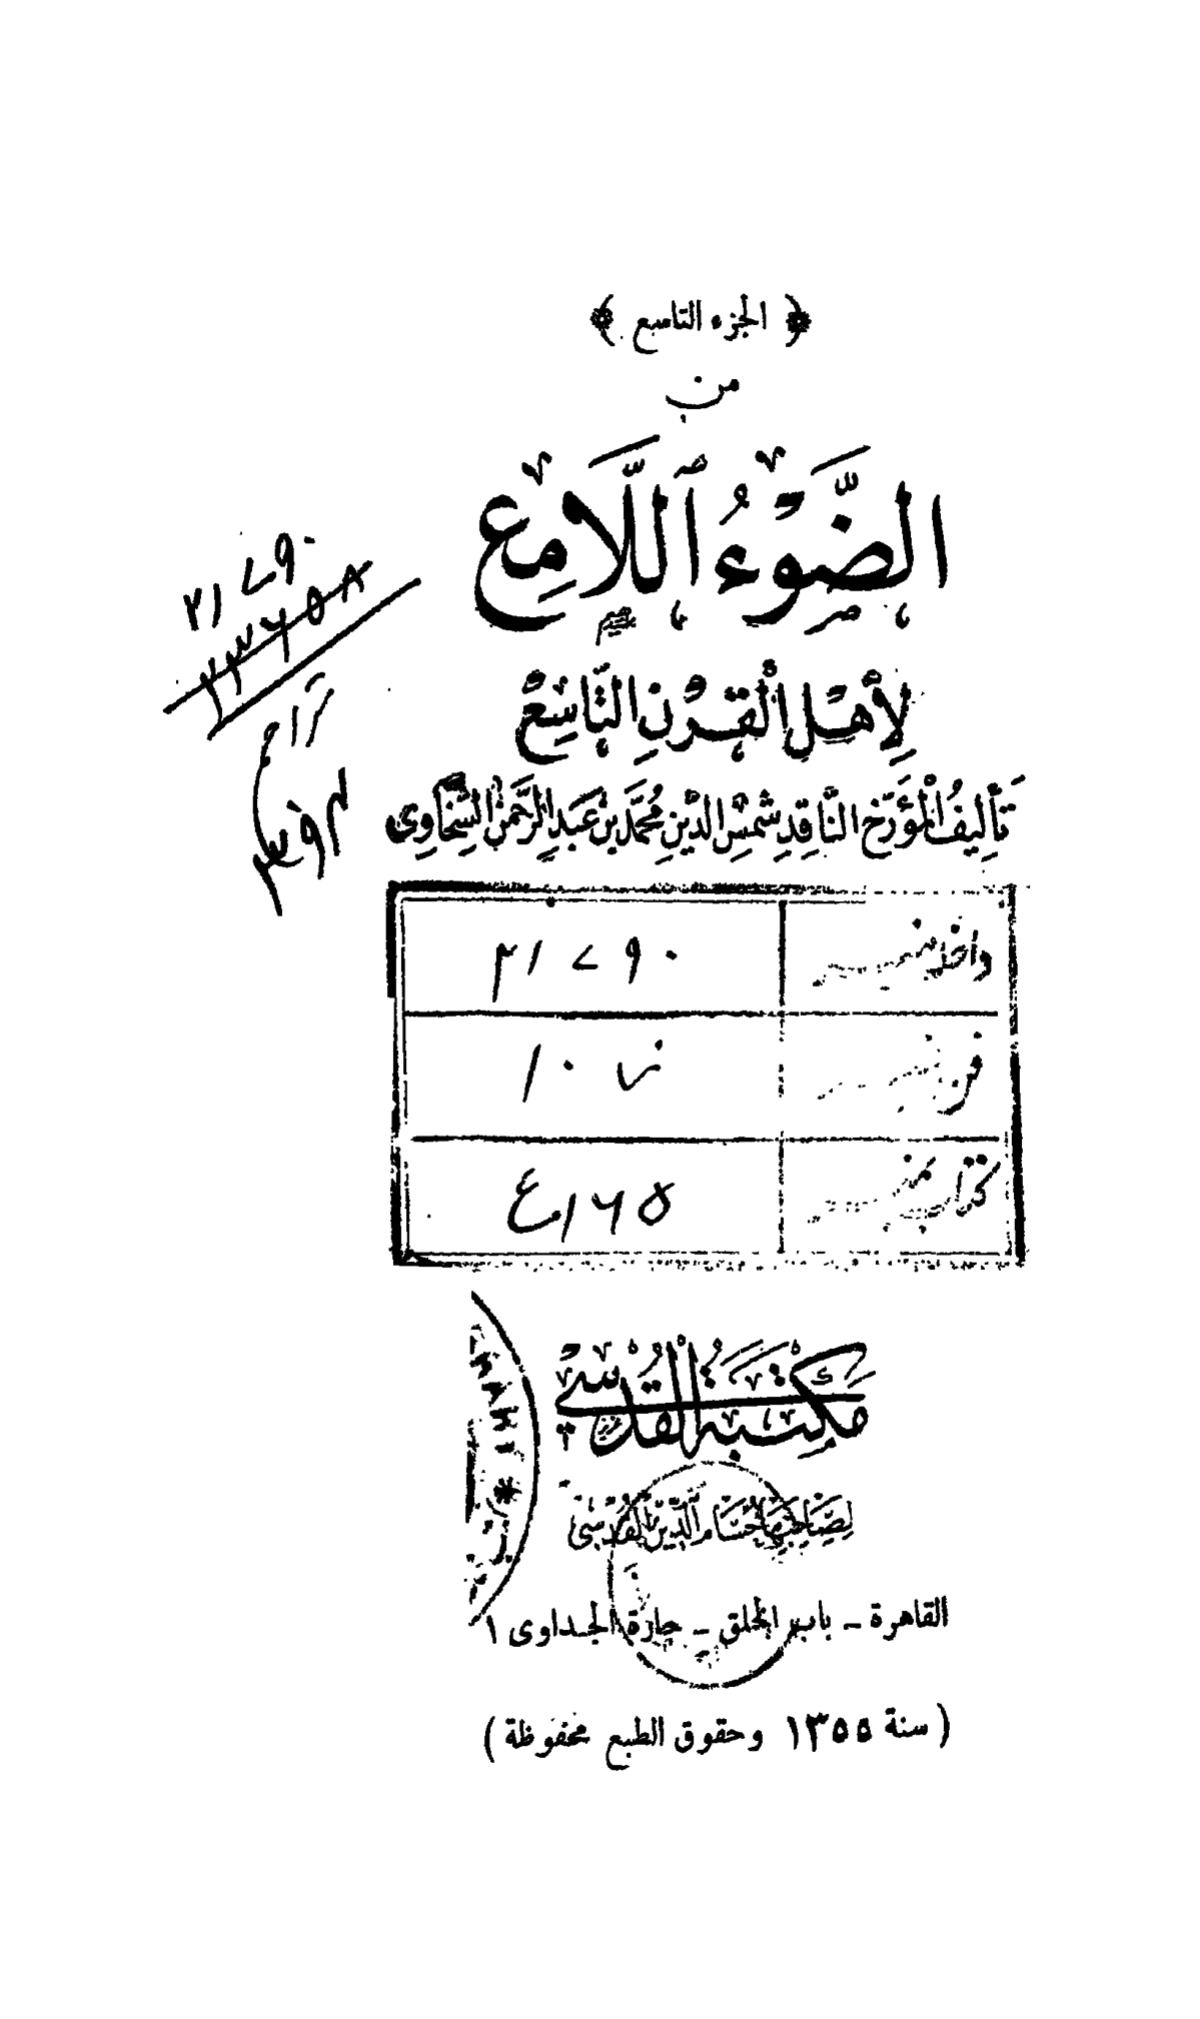 ﴿ الجزء التاسع ﴾
من
الضَّوْءُ ٱللَّامِعُ
لِأَهْلِ ٱلْقَرْنِ التَّاسِعْ
تَأْلِيفُ الْمُؤَرِّخِ النَّاقِدِ شَمْسِ الدِّينِ مُحَمَّدِ بْنِ عَبْدِ الرَّحْمٰنِ السَّخَاوِى
٢١٧٩٠
٢٣٦٥٨
تراجم
داخلہ نمبر ٢١٧٩٠
فن نمبر ١٠٧
کتاب نمبر
مَكْتَبَةُ الْقُدْسِي
لِصَاحِبِهَا حُسَام الدِّين القُدْسِى
القاهرة ـ باب الخلق ـ حارة الجداوى ١
( سنة ١٣٥٥ وحقوق الطبع محفوظة )